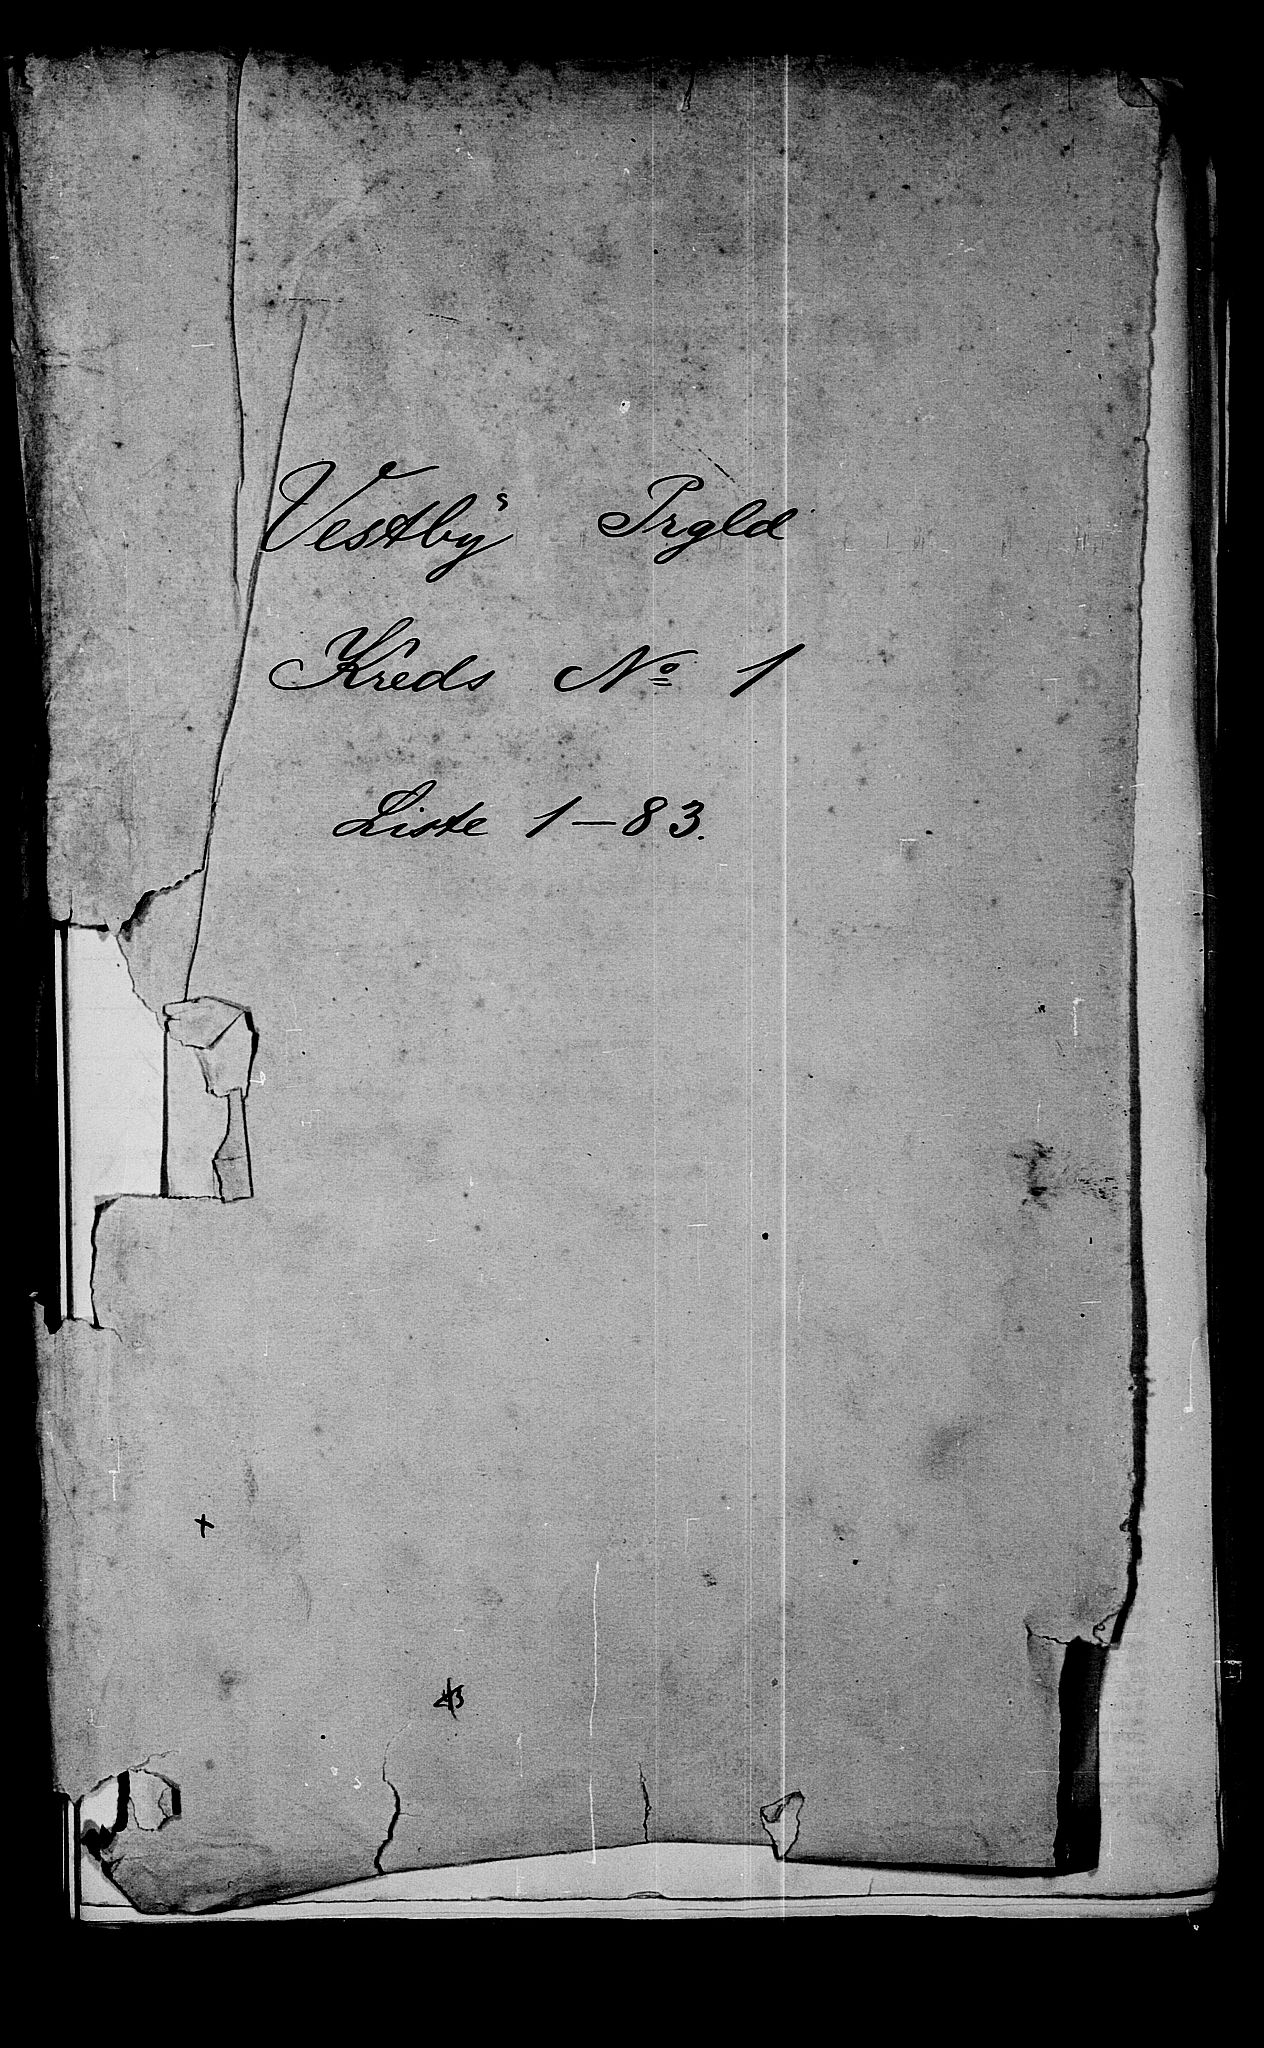 Vestby's Prgld
Kreds No 1
Liste 1-83.